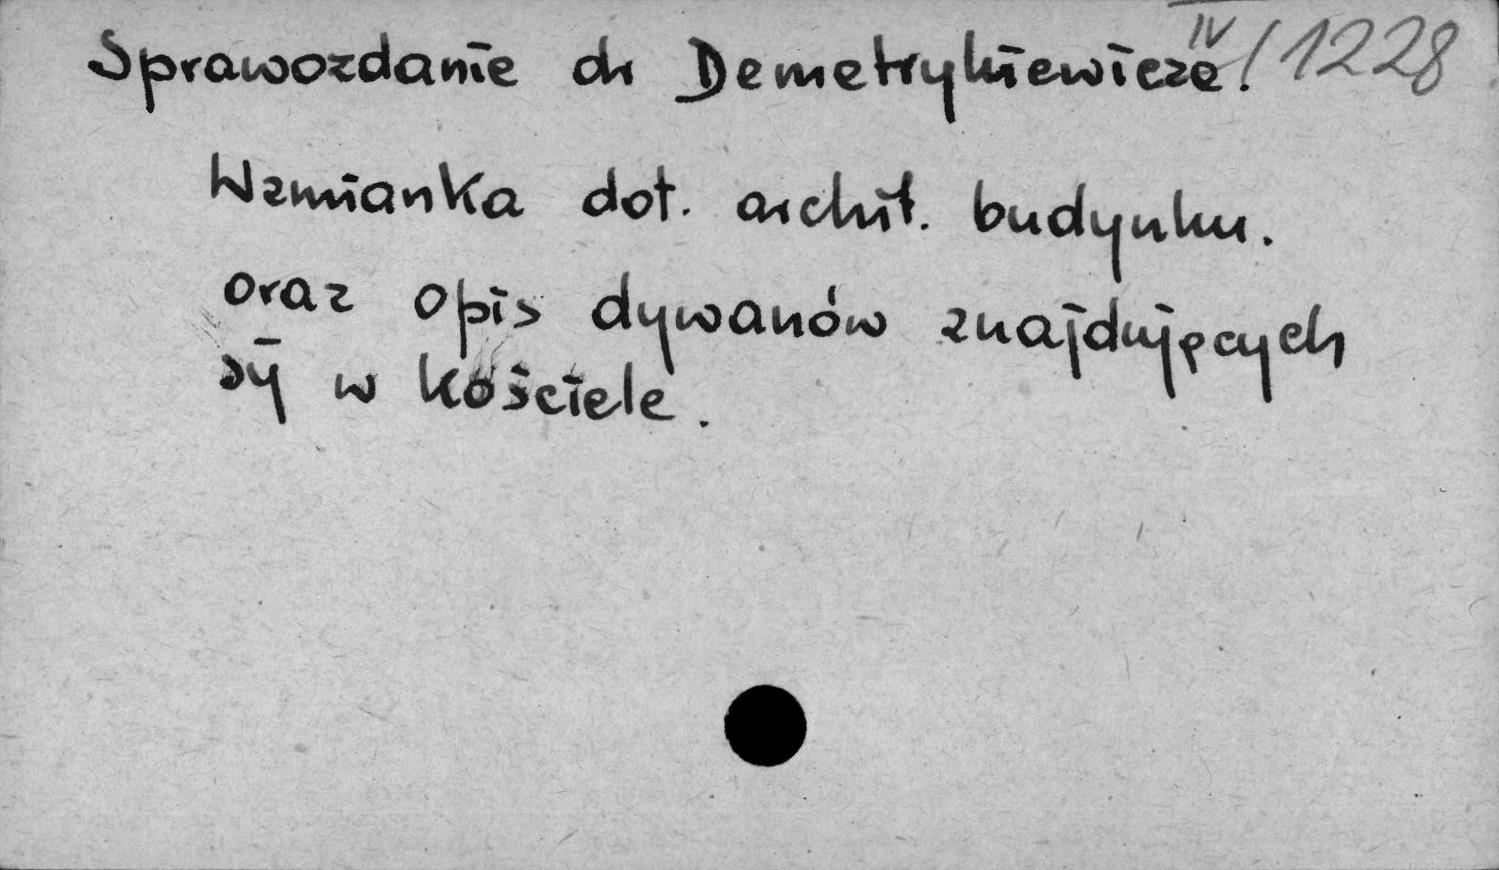 Sprawozdanie dr Demetrykiewicza. IV/1228
Wzmianka dot. archit. budynku.
oraz opis dywanów znajdujących
się w kościele.